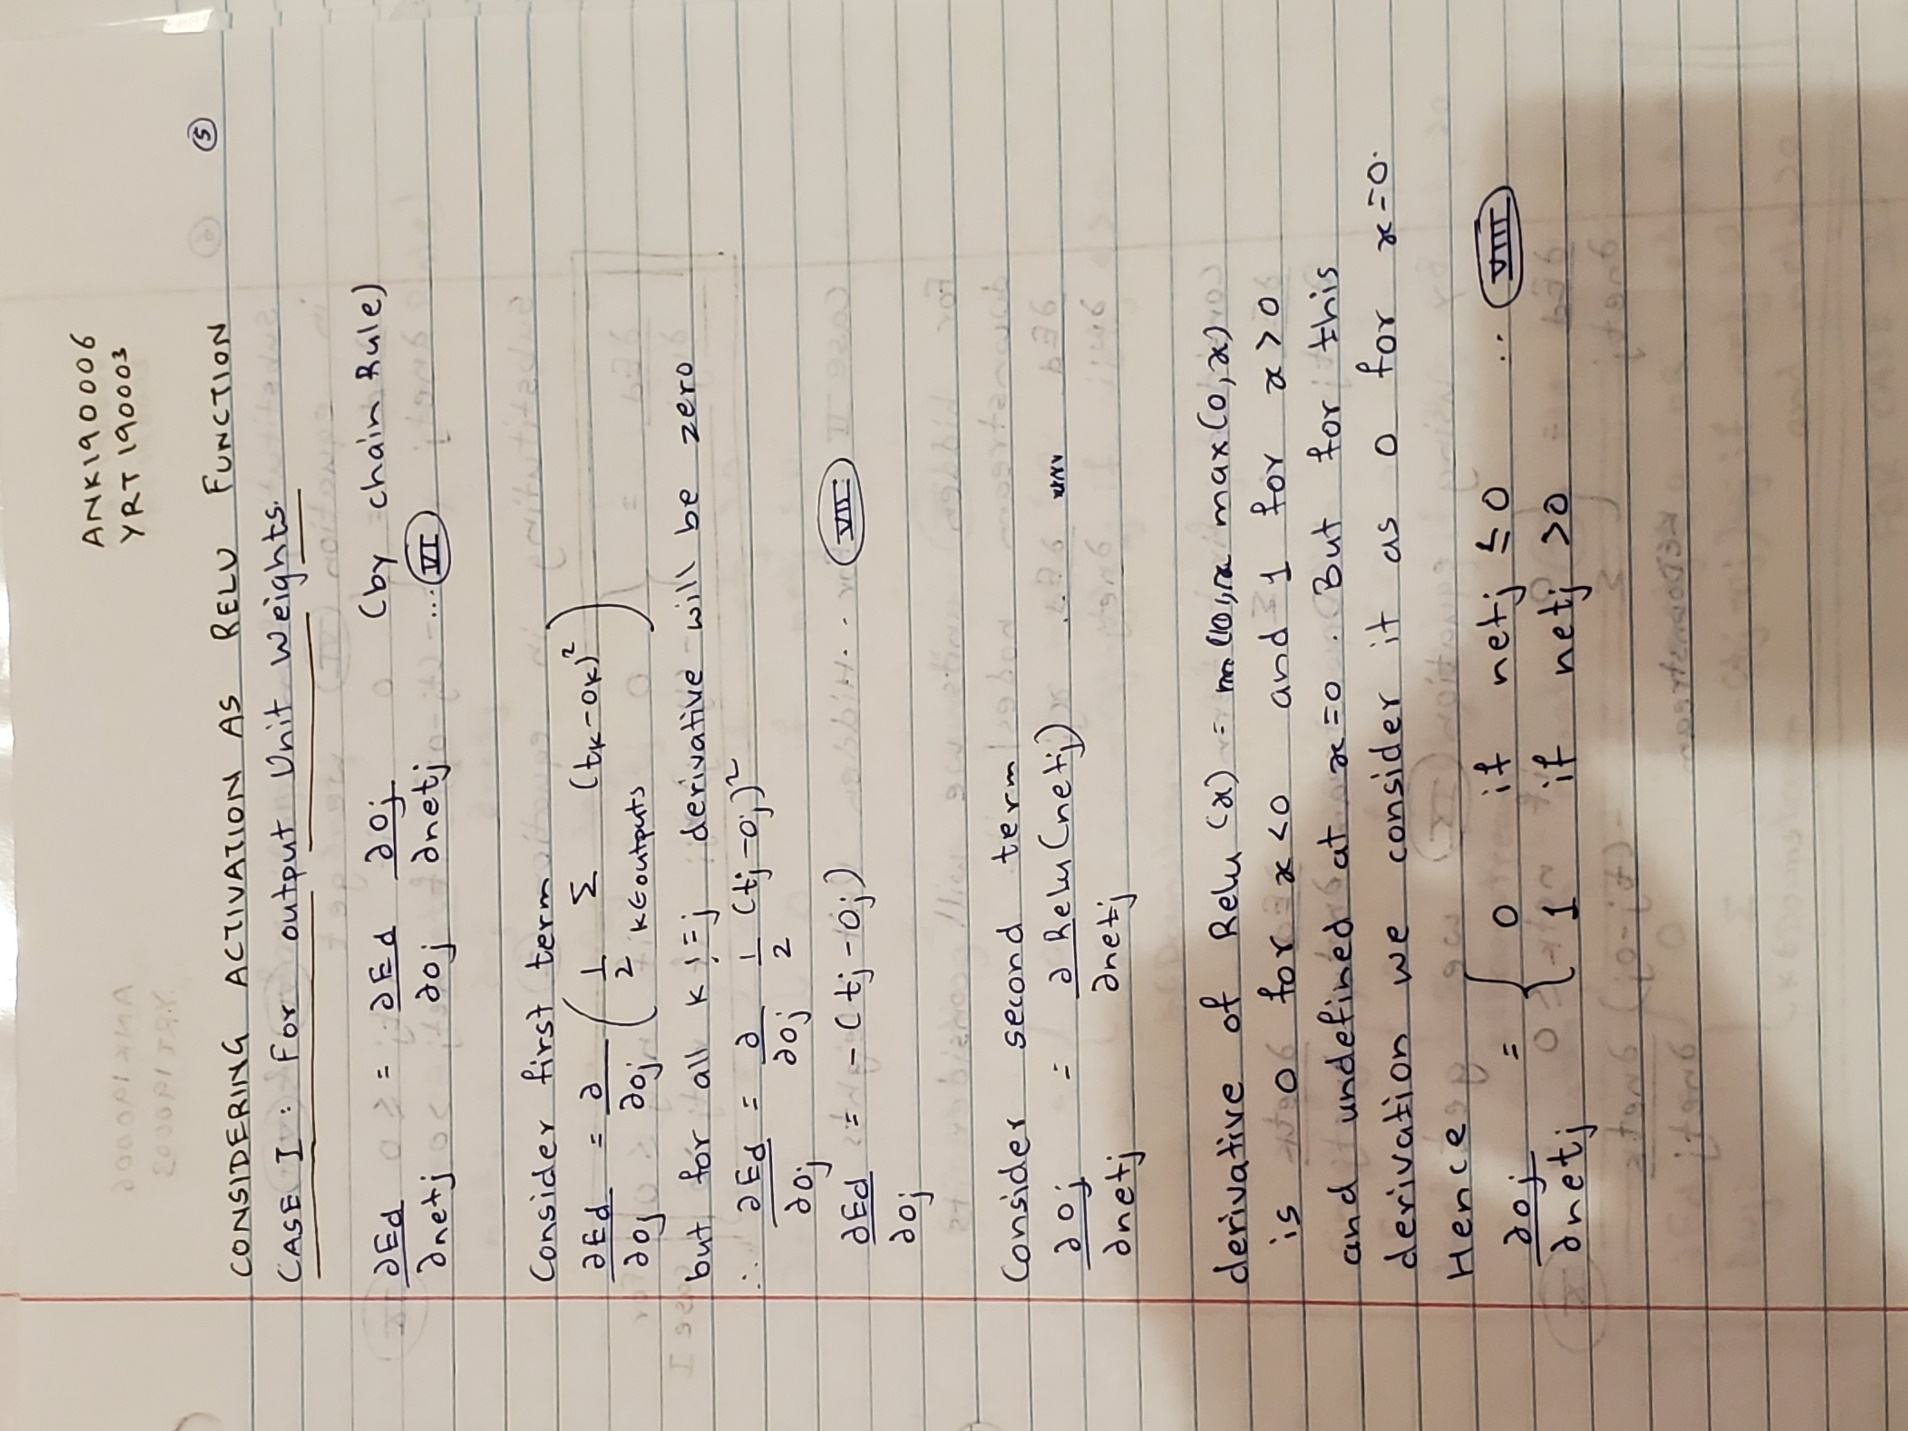 ANK190006
YRT190003
5
CONSIDERING ACTIVATION AS RELU FUNCTION
CASE I: For output Unit Weights.
∂Ed/∂netj = ∂Ed/∂oj ∂oj/∂netj (by chain Rule) ... VI
Consider first term
∂Ed/∂oj = ∂/∂oj (1/2 Σ k∈outputs (tk-ok)²)
but for all k != j derivative will be zero
∴ ∂Ed/∂oj = ∂/∂oj 1/2 (tj-oj)²
∂Ed/∂oj = -(tj-oj) ... VII
Consider second term
∂oj/∂netj = ∂Relu(netj)/∂netj
derivative of Relu(x) = max(0,x)
is 0 for x<0 and 1 for x>0
and undefined at x=0. But for this
derivation we consider it as 0 for x=0.
Hence
∂oj/∂netj = { 0 if netj ≤ 0
1 if netj >0 ... VIII